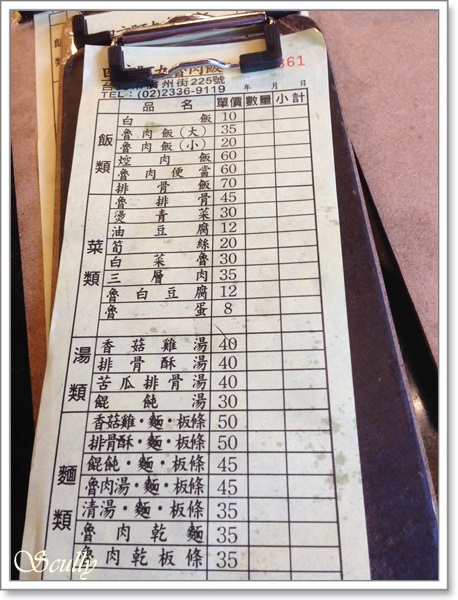 361
廣州街225號
TEL：(02)2336-9119 年 月 日
品名 單價 數量 小計
飯類
白飯 10
魯肉飯(大) 35
魯肉飯(小) 20
焢肉飯 60
魯肉便當 60
排骨飯 70
菜類
魯排骨 45
燙青菜 30
油豆腐 12
筍絲 20
白菜魯 30
三層肉 35
魯白豆腐 12
魯蛋 8
湯類
香菇雞湯 40
排骨酥湯 40
苦瓜排骨湯 40
餛飩湯 30
麵類
香菇雞・麵・板條 50
排骨酥・麵・板條 50
餛飩・麵・板條 45
魯肉湯・麵・板條 45
清湯・麵・板條 35
魯肉乾麵 35
魯肉乾板條 35
Scully